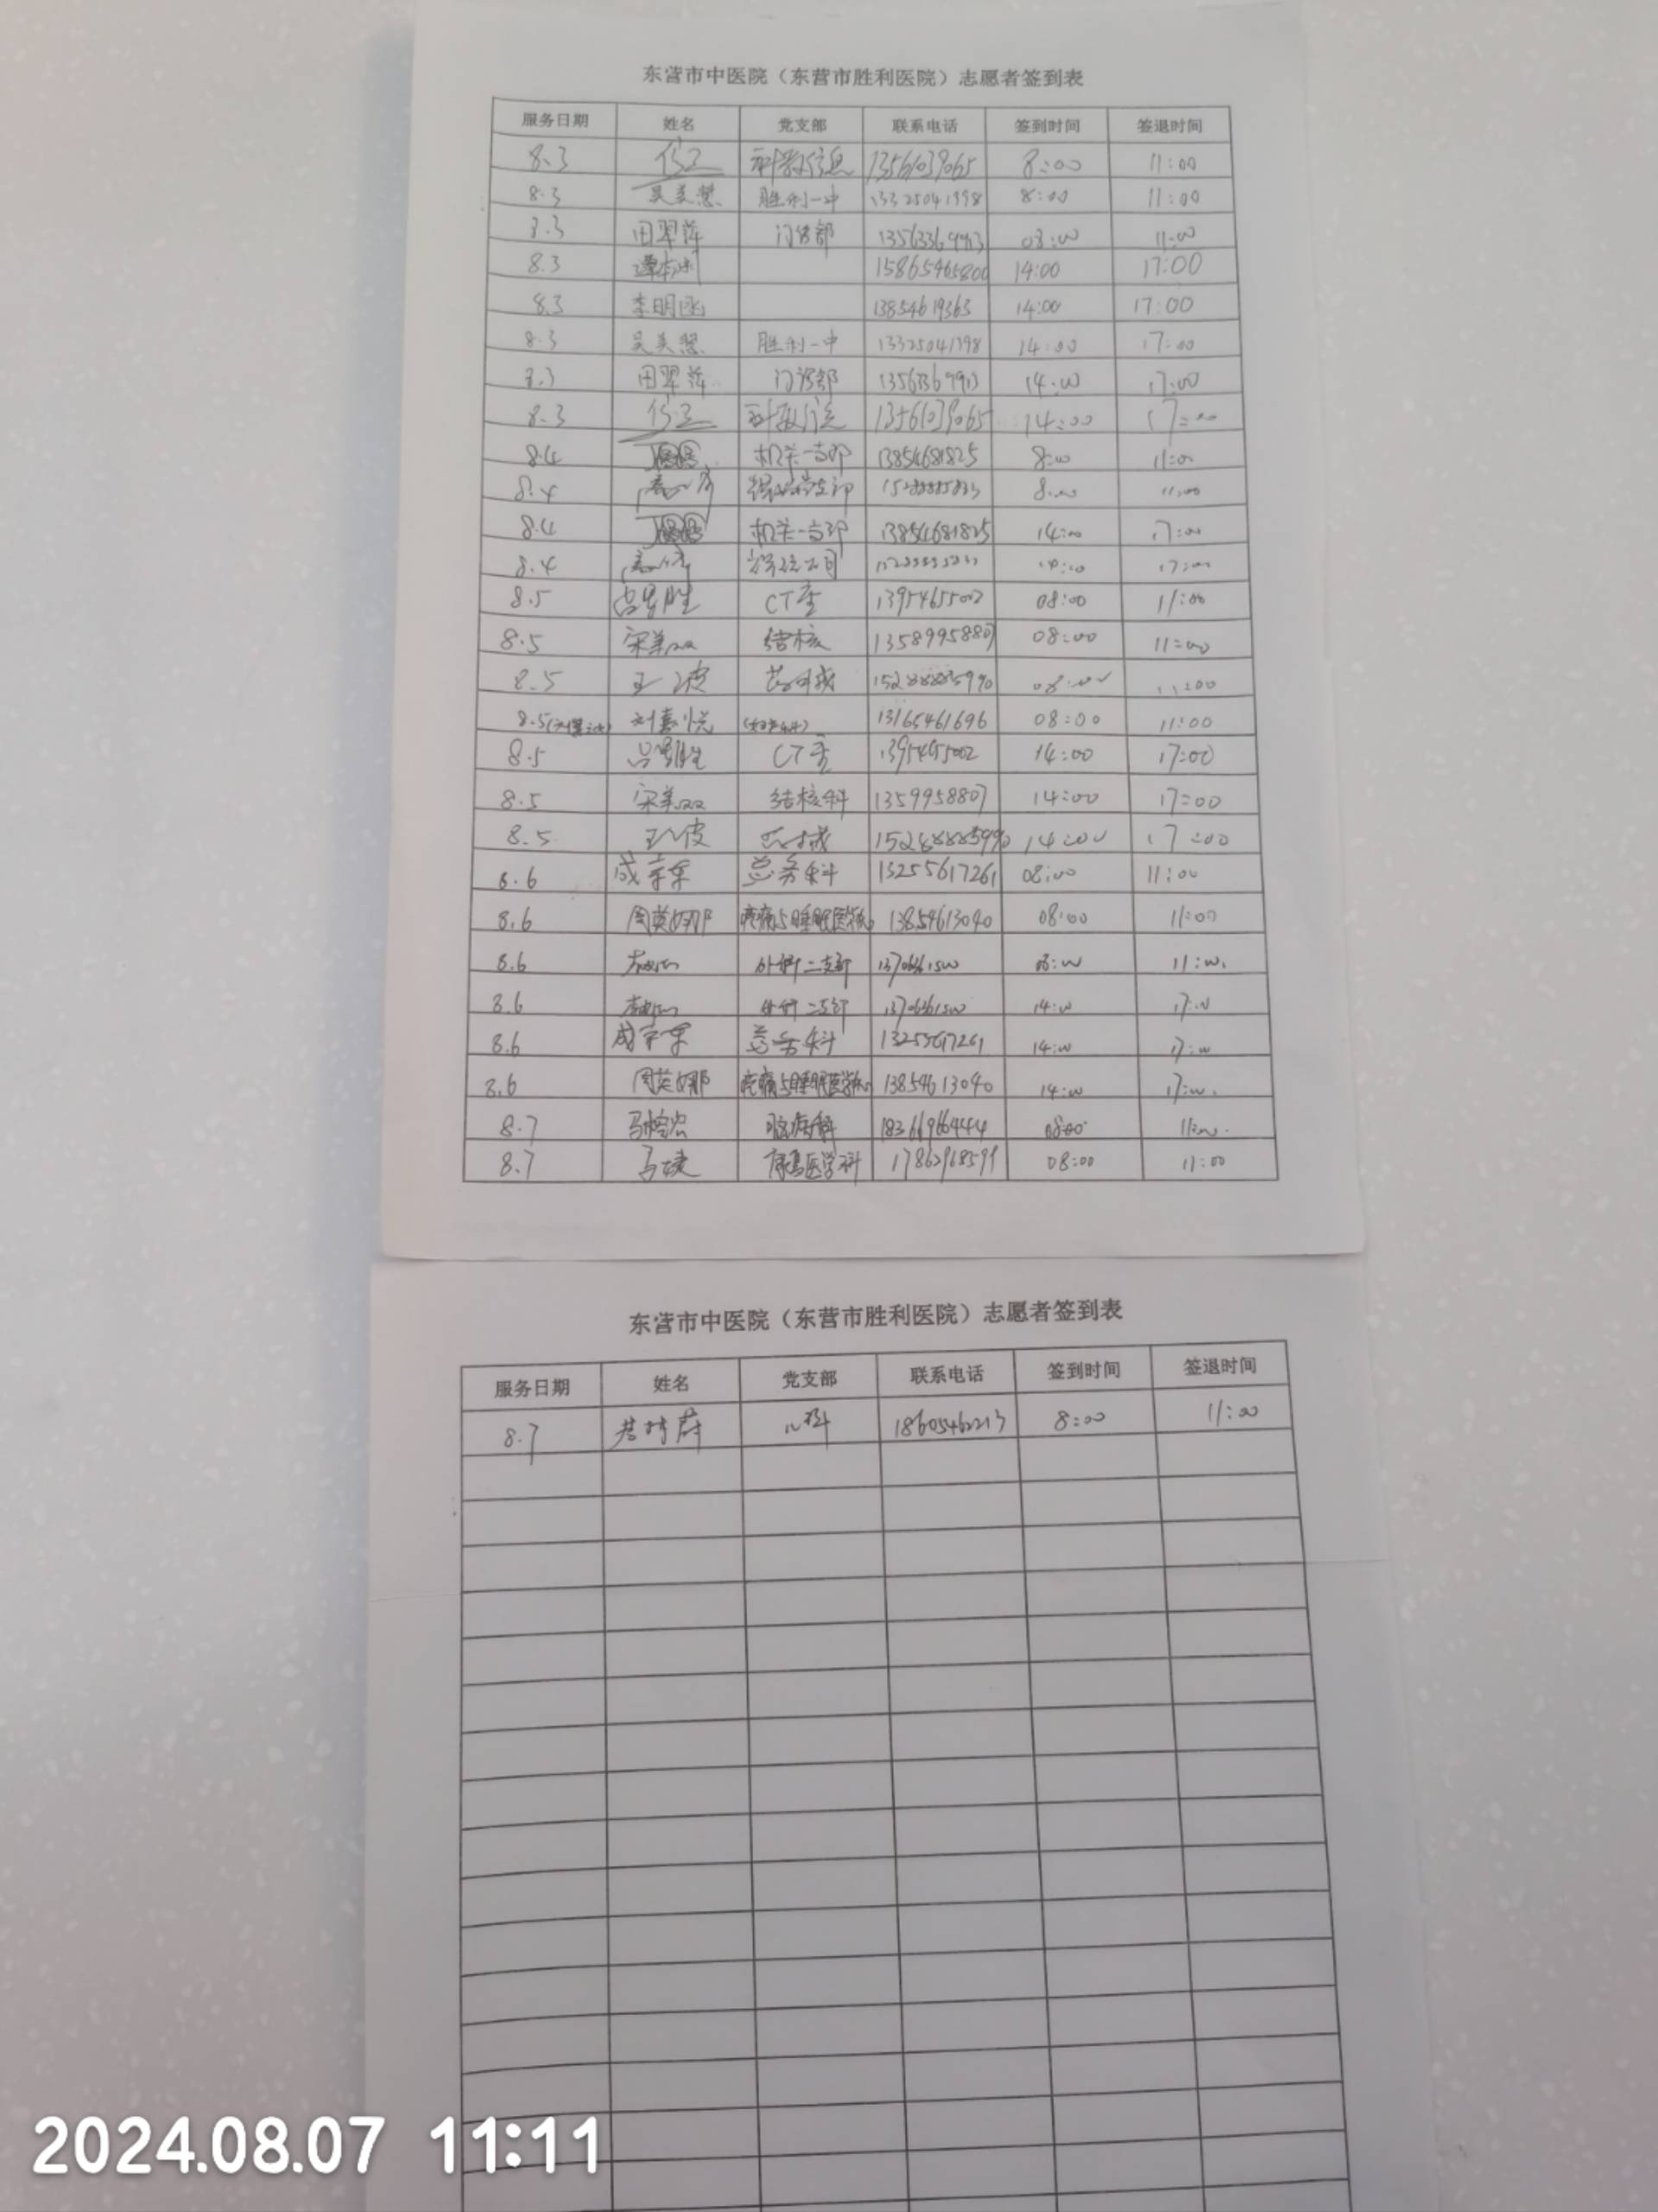 东营市中医院（东营市胜利医院）志愿者签到表
服务日期 姓名 党支部 联系电话 签到时间 签退时间
8.3 科教信息 13561039065 8:00 11:00
8.3 吴美慧 胜利一中 13325041398 8:00 11:00
8.3 田翠萍 门诊部 08:00 11:00
8.3 15865465800 14:00 17:00
8.3 李明函 13854619363 14:00 17:00
8.3 吴美慧 胜利一中 13325041398 14:00 17:00
8.3 田翠萍 门诊部 14:00 17:00
8.3 科教信息 13561039065 14:00 17:00
8.4 机关一支部 13854681825 8:00 11:00
8.4 8:00 11:00
8.4 机关一支部 13854681825 14:00 17:00
8.4 14:00 17:00
8.5 吕军胜 CT室 13954655002 08:00 11:00
8.5 结核 13589958807 08:00 11:00
8.5 王波 15288885990 08:00 11:00
8.5 刘嘉悦 13165461696 08:00 11:00
8.5 CT室 14:00 17:00
8.5 结核科 1359958807 14:00 17:00
8.5 15288885990 14:00 17:00
8.6 成荣军 总务科 13255617261 08:00 11:00
8.6 周英娜 疼痛与睡眠医学科 13854613040 08:00 11:00
8.6 外科二支部 08:00 11:00
8.6 外科二支部 14:00 17:00
8.6 总务科 13255617261 14:00 17:00
8.6 周英娜 疼痛与睡眠医学科 13854613040 14:00 17:00
8.7 脑病科 18366966444 08:00 11:00
8.7 马婕 康复医学科 17862968599 08:00 11:00
东营市中医院（东营市胜利医院）志愿者签到表
服务日期 姓名 党支部 联系电话 签到时间 签退时间
8.7 18605462213 8:00 11:00
2024.08.07 11:11